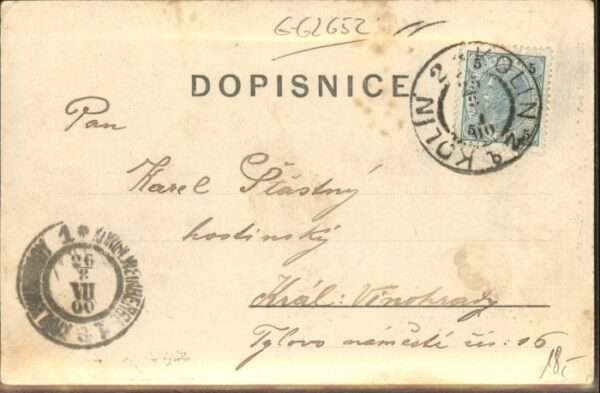 G-62652
DOPISNICE
5 5
KOLÍN 2 KOLIN 2
Pan
Karel Šťastný
hostinský
Král: Vinohrady
Tylovo náměstí čís: 16
18,-
1
26
8
VII
00